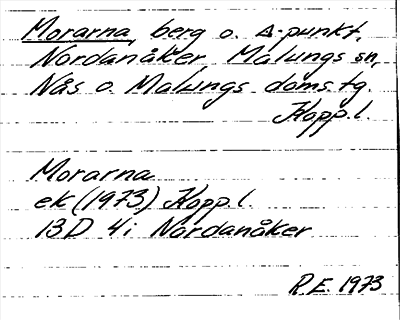 Morarna, berg o. Δ-punkt,
Nordanåker Malungs sn,
Nås o. Malungs doms.tg.
Kopp.l.
Morarna
ek (1973) Kopp.l.
13D 4i Nordanåker
R.E. 1973